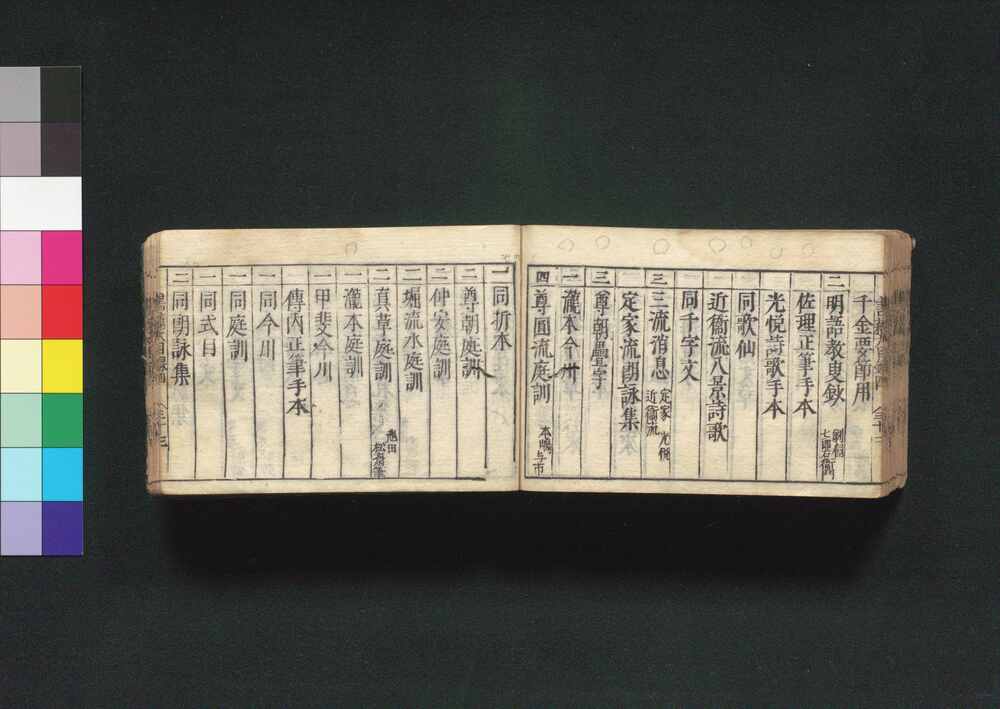 千金要節用
二 明語教
佐理正筆手本
光悦詩歌手本
一 同歌仙
一 近衛流八景詩歌
一 同千字文
三 三流消息 定家 光悦 近衛流
一 定家流朗詠集
三 尊朝疊字
一 瀧本今川
四 尊圓流庭訓 本嶋与市
一 同折本
二 尊朝庭訓
二 仲安庭訓
二 堀流水庭訓
二 真草庭訓
一 瀧本庭訓
一 甲斐今川
傳内正筆手本
一 同今川
一 同庭訓
一 同式目
二 同朗詠集